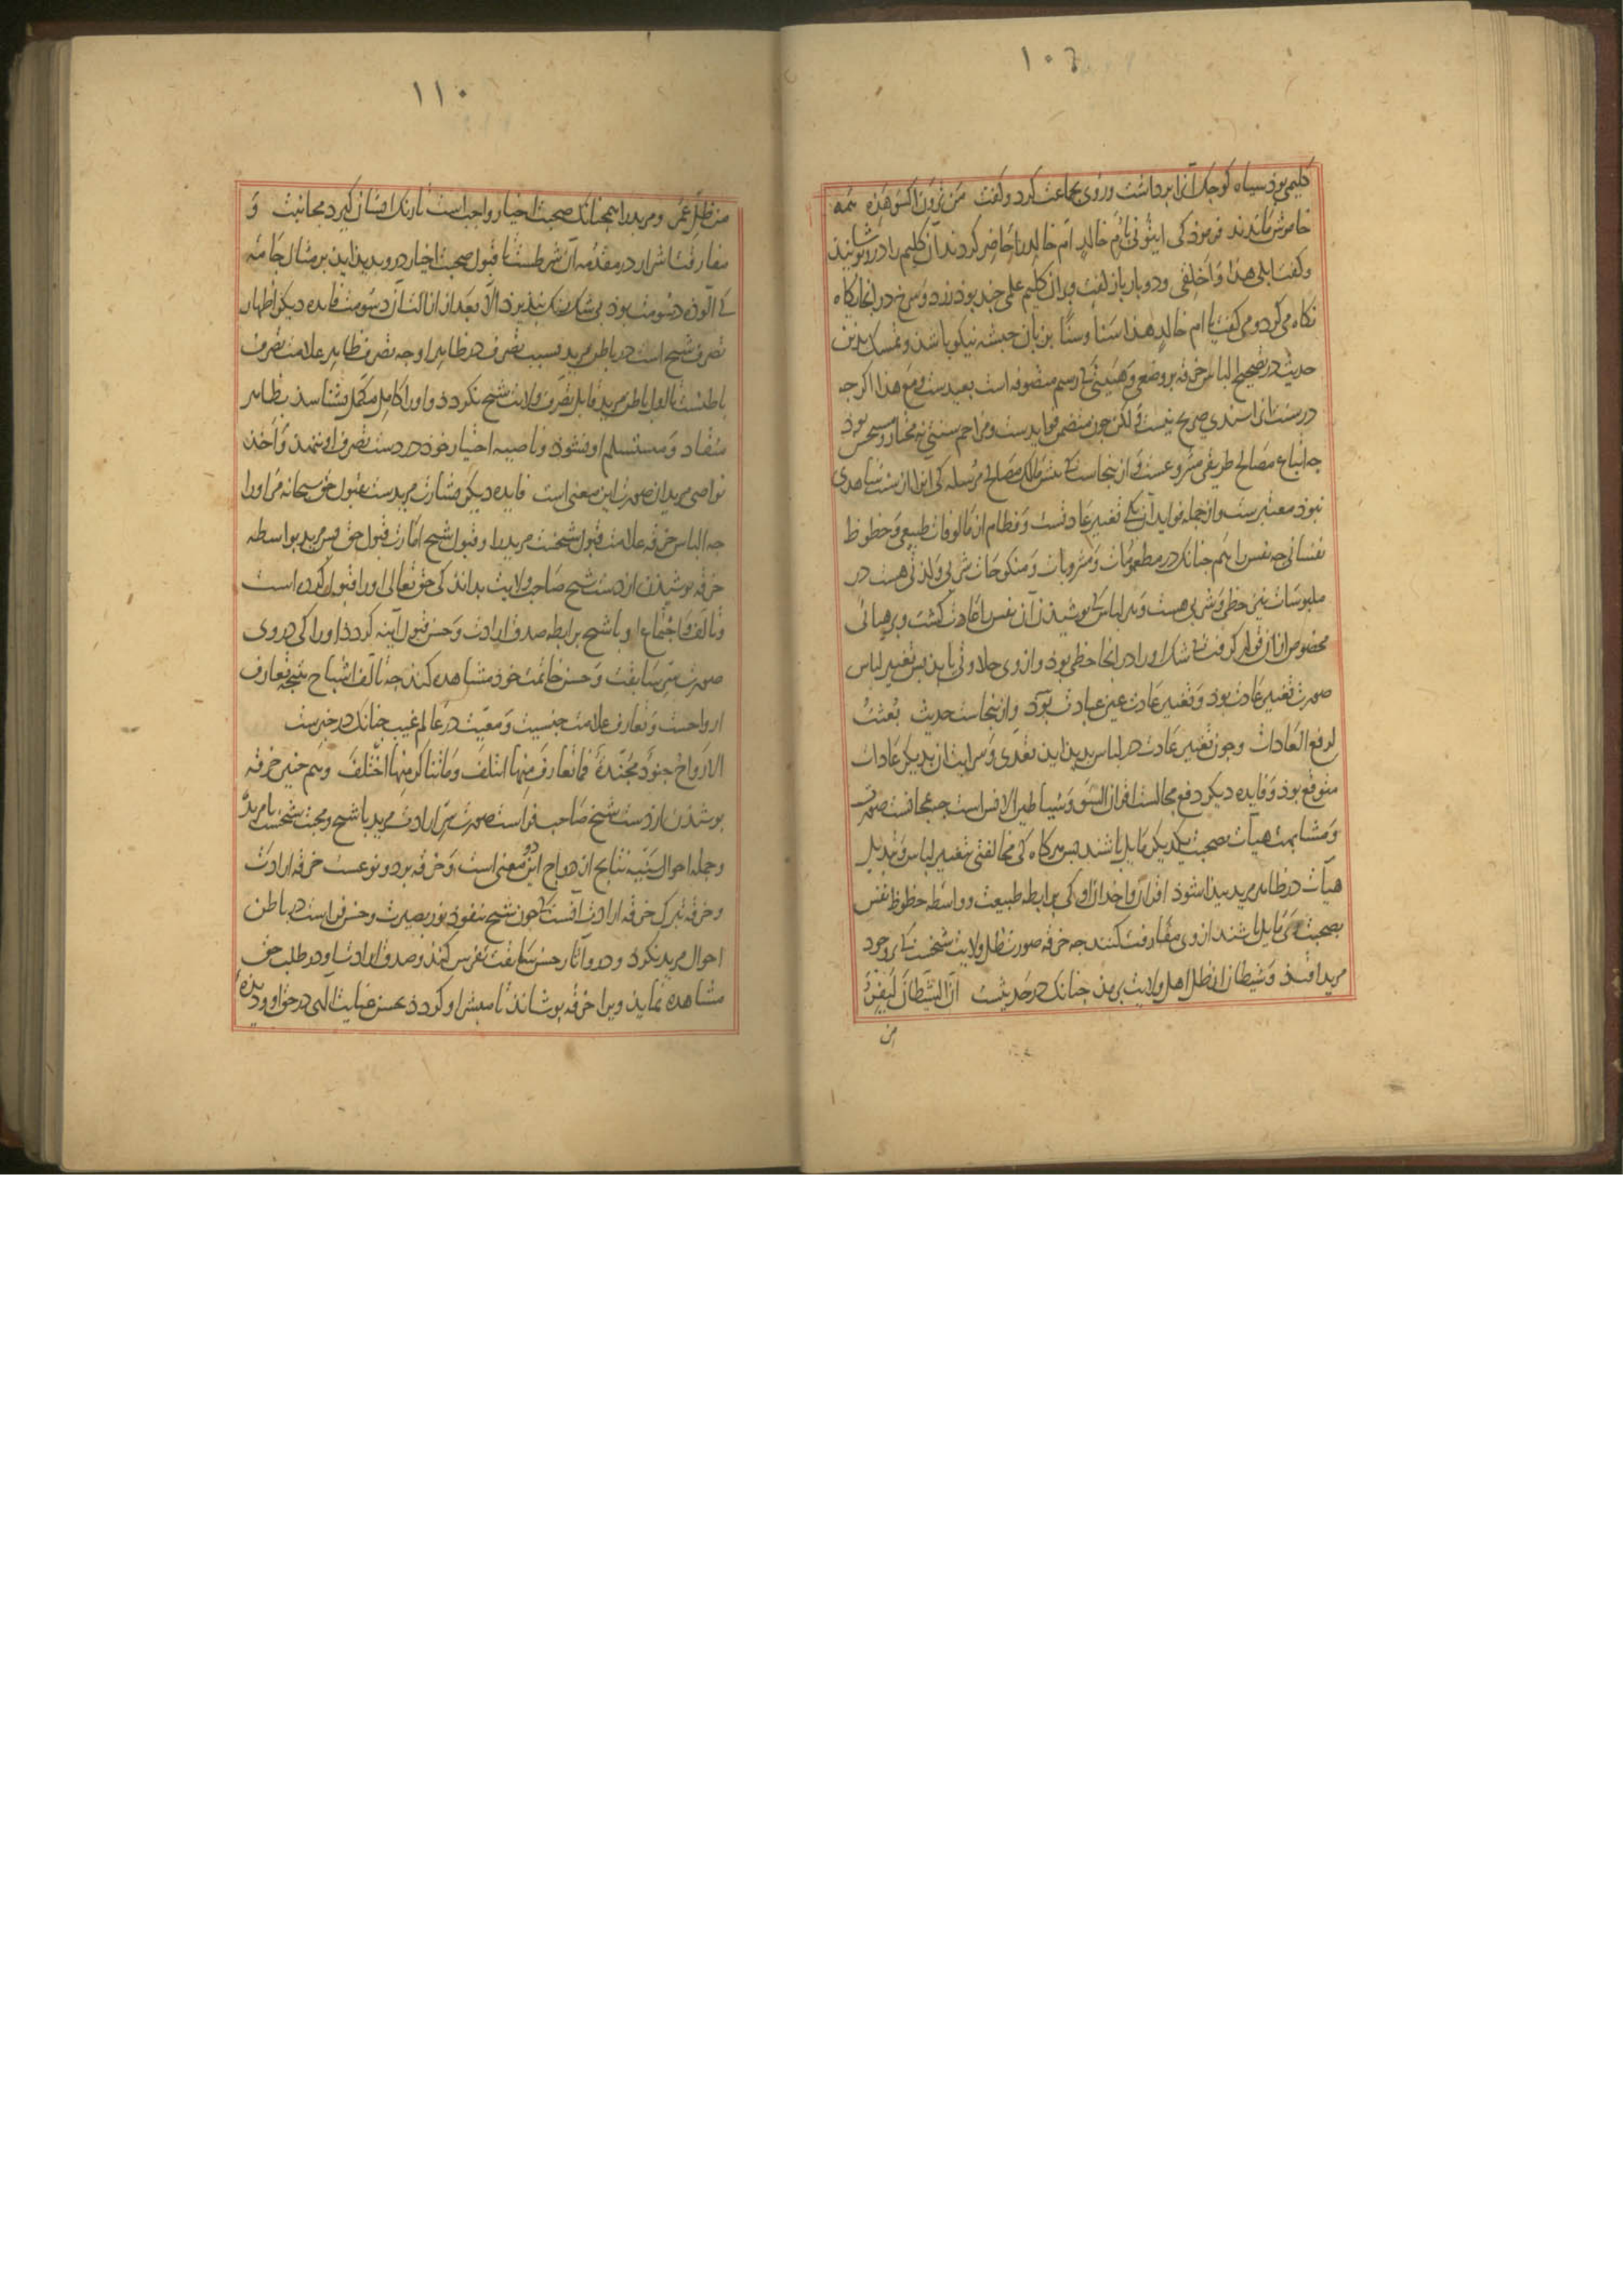 ۱۰۹
کلیمی بوذ سیاه کوجک آنرا برداشت و روی بجماعت کرد و کفت مَن تَرَونَ اَکسُو هٰذِه همه
خاموش ماندند فرموذ کی ایتونی بِاُمّ خالد ام خالد را حاضر کردند آن کلیم را درو پوشانید
و کفت ابلی هذا وَ اَخلِقی و دو بار باز کفت و بران کلیم علمی جند بوذ زرد و سرخ در انجا نکاه
نکاه می کرد و می کفت یا ام خالد هذا سَنا و سَنّا بزبان حبشه نیکو باشد و تمسک بدین
حدیث در تصحیح الباس خرقه بر وضعی و هیئتی کی رسم متصوفه است بعیدست و مع هذا اکر جه
درسُنّت آنرا سندی صریح نیست و لکن جون متضمن فوایدست و مزاحم سنتی نه مختار و مستحسن بوذ
جه اتباع مصالح طریقی مشروعست و ازینجاست کی نزد مالک مصالح مرسله کی انرا از سنت شاهدی
نبوذ معتبرست و از جمله فواید آن یکی تغییر عادتست و فطام از مالوفات طبیعی و حظوظ
نفسانی جه نفس را هم جنانک در مطعومات وَ مشروبات و منکوحات شربی و لذتی هست در
ملبوسات نیز حظی و شربی هست و هر لباس کی بوشیذن آن نفس را عادت کشت و بر هیأتی
مخصوص از ان قرار کرفت بی شک او را در انجا حظی بوذ و از وی حلاوتی یابذ بس تغییر لباس
صورت تغییر عادت بوذ و تغییر عادت عین عبادت بوَد و ازینجاست حدیث بُعثتُ
لرفع العَادات و جون تغییر عادت در لباس بدید آید تعدی و سرایت ان بدیکر عادات
متوقع بوذ وَ فایده دیکر دفع مجالست اقران السّوء و شیاطین الانس است جه بمجانست صورت
و مشابهت هیآت بصحبت یکدیکر مایل باشند بس هرکاه کی مخالفتی بتغییر لباس و تبدیل
هیآت در ظاهر مرید بیدا شوذ اقران و اخدان او کی برابطه طبیعت و واسطه حظوظ نفس
بصحبت وی مایل باشند از وی مفارقت کنند جه خرقه صورت ظل ولایت شیخست کی بر وجود
مرید افتد وَ شیطان از ظل اهل ولایت برمذ جنانک در حَدیثست اِنّ الشَّیطانَ لَیَفِرُّ
من
۱۱۰
من ظلّ عُمَر و مرید را همجنانک صحبت اخیار واجب است تا رنک ایشان کیرد مجانبت وَ
مفارقت اشرار در مقدمه آن شرطست تا قبول صحبت اخیار در وی بدید آید بر مثال جامهٔ
کی آلوذه دسومت بوذ بی شک رنک نبذیرذ الّا بعد از ازالت آن دسومت فایده دیکر اظهار
تصرف شیخ است در باطن مرید بسبب تصرف در ظاهر او جه تصرف ظاهر علامت تصرف
باطنست تا اول باطن مرید قابل تصرّف ولایت شیخ نکردذ و او را کامل و مکمل نشناسذ بظاهر
منقاد وَ مستسلم او نشوذ و ناصیه اختیار خوذ در دست تصرف او ننهذ و اخذ
نواصی مریدان صورت این معنی است فایده دیکر بشارت مریدست بقبول حق سبحانه مر او را
جه الباس خرقه علامت قبول شیخست مرید را و قبول شیخ امارت قبول حق بس مرید بواسطه
خرقه بوشیذن از دست شیخ صاحب ولایت بداند کی حق تعالی او را قبول کرده است
و تالف وَ اجتماع او با شیخ برابطه صدق ارادت وَ حسن قبول آینه کردذ او را کی در وی
صورت سِرّ سابقت وَ حسن خاتمت خوذ مشاهده کند جه تالف اشباح نتیجه تعارف
ارواحست و تعارف علامت جنسیت و معیّت در عالم غیب جنانک در خبرست
الاَرواحُ جنودٌ مُجَنّدةٌ فما تعارفَ مِنها ائتلفَ وَ ماتناکرَ مِنها اختلفَ و هم جنین خرقه
بوشیذن از دست شیخ صاحب فراست صورت سرّ ارادت مرید با شیخ و محبت شیخست با مرید
و جمله احوال سَنِیّه نتایج ازدواج این دو معنی است وَ خرقه بر دو نوعست خرقه ارادت
و خرقه تبرک خرقه ارادت آنست کی جون شیخ بنفوذ نور بصیرت و حسن فراست در باطن
احوال مرید نکرد و درو آثار حسن سابقت تفرس کند و صدق ارادت او در طلب حق
مشاهده نماید ویرا خرقه بوشاند تا مبشر او کردذ بحسن عنایت الهی در حق او و دیدهٔ